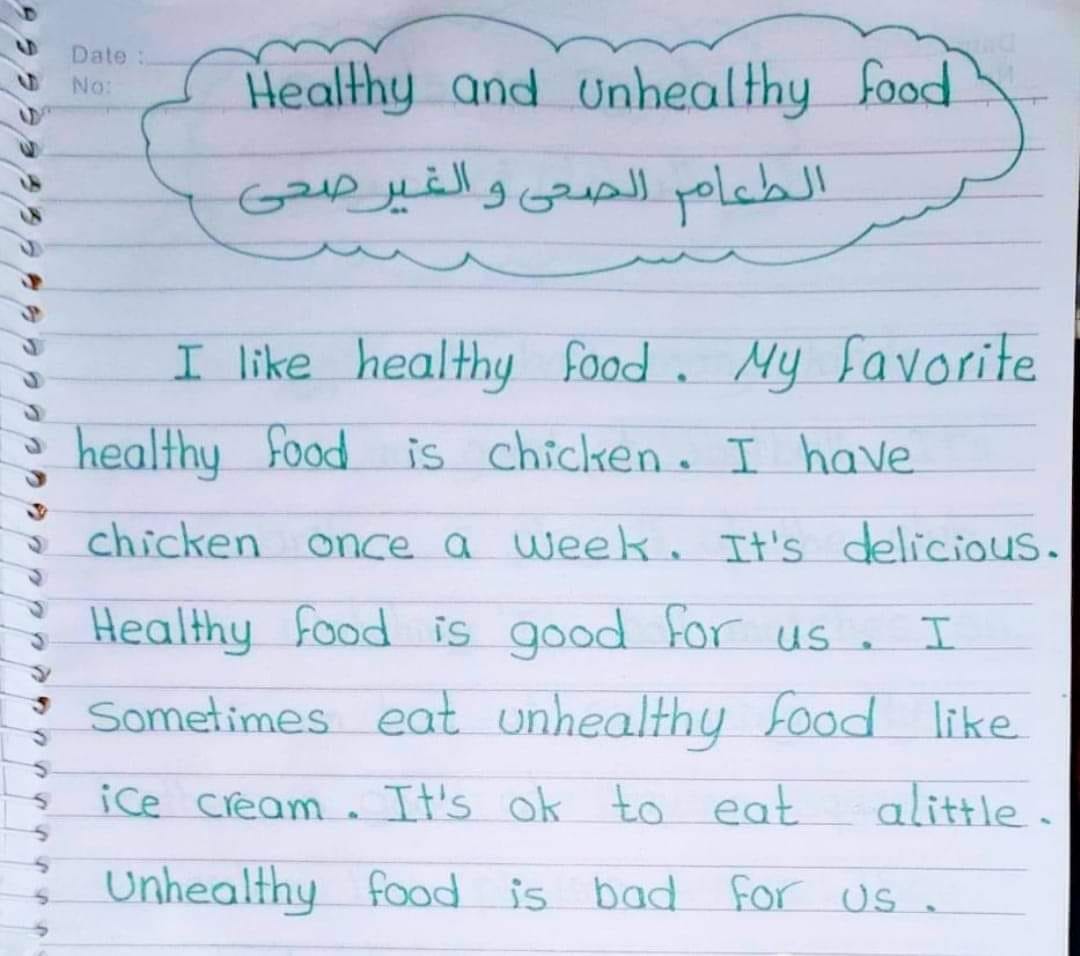 Date :
No:
Healthy and unhealthy food
الطعام الصحى و الغير صحى
I like healthy food. My favorite
healthy food is chicken. I have
chicken once a week. It's delicious.
Healthy food is good for us. I
sometimes eat unhealthy food like
ice cream. It's ok to eat alittle.
Unhealthy food is bad for us.